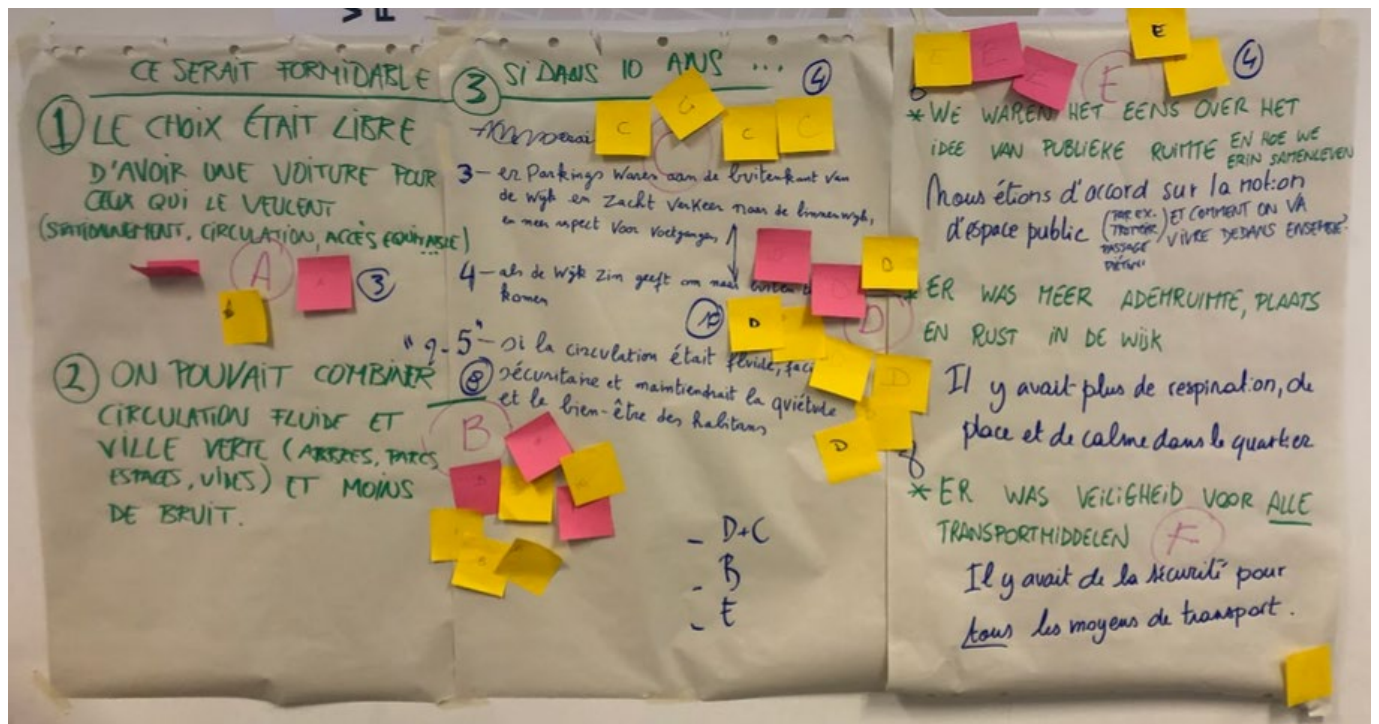 CE SERAIT FORMIDABLE
SI DANS 10 ANS ...
1 LE CHOIX ÉTAIT LIBRE
D'AVOIR UNE VOITURE POUR
CEUX QUI LE VEULENT
(STATIONNEMENT, CIRCULATION, ACCÈS ÉQUITABLE)
A
3
2 ON POUVAIT COMBINER
CIRCULATION FLUIDE ET
VILLE VERTE (ARBRES, PARCS,
ESPACES, VIDES) ET MOINS
DE BRUIT.
8
B
3
4
C C C
C
3 – er Parkings waren aan de buitenkant van
de wijk en zacht verkeer naar de binnenwijk,
en meer respect voor voetgangers
4 – als de wijk zin geeft om naar buiten te
komen
5 – si la circulation était fluide,
sécuritaire et maintiendrait la quiétude
et le bien-être des habitans
D
D
D
D
D
– D+C
– B
– E
E E E
E
E
4
* WE WAREN HET EENS OVER HET
IDEE VAN PUBLIEKE RUIMTE EN HOE WE
ERIN SAMENLEVEN
Nous étions d'accord sur la notion
d'espace public (PAR EX. TROTTOIR PASSAGE PIÉTON) ET COMMENT ON VA
VIVRE DEDANS ENSEMBLE.
* ER WAS MEER ADEMRUIMTE, PLAATS
EN RUST IN DE WIJK
Il y avait plus de respiration, de
place et de calme dans le quartier
* ER WAS VEILIGHEID VOOR ALLE
TRANSPORTMIDDELEN
F
Il y avait de la sécurité pour
tous les moyens de transport.